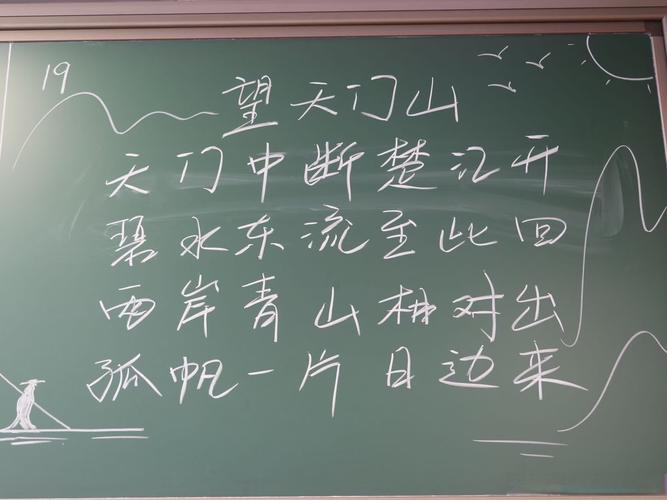 19
望天门山
天门中断楚江开
碧水东流至此回
两岸青山相对出
孤帆一片日边来